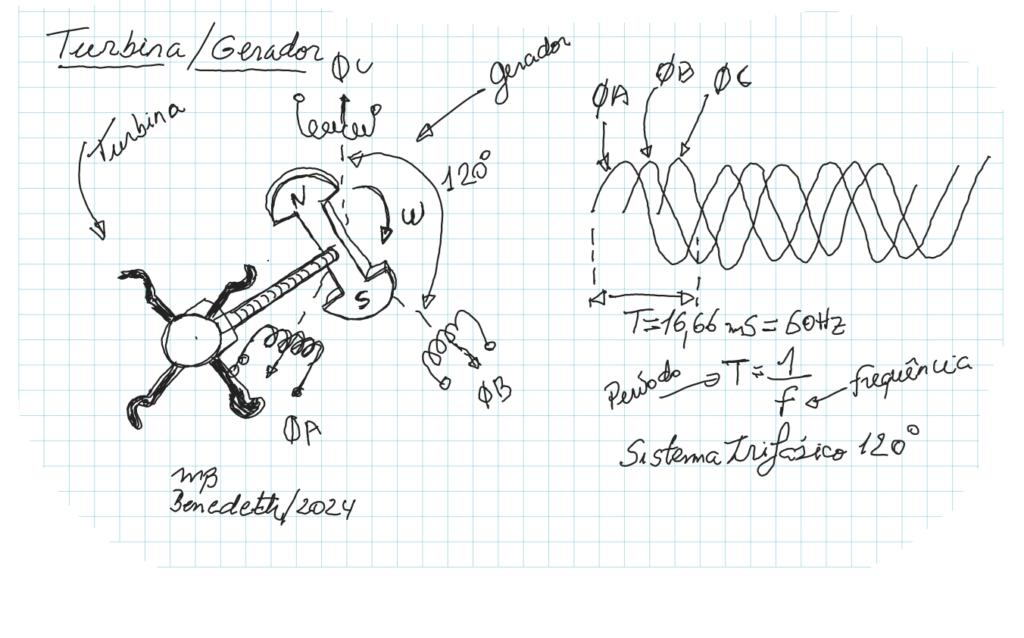 Turbina/Gerador
ØC
gerador
Turbina
120°
N
ω
S
ØA
ØB
ØA
ØB
ØC
T=16,66 mS = 60Hz
Período
T = 1/f
frequência
Sistema Trifásico 120°
MB
Benedetti/2024